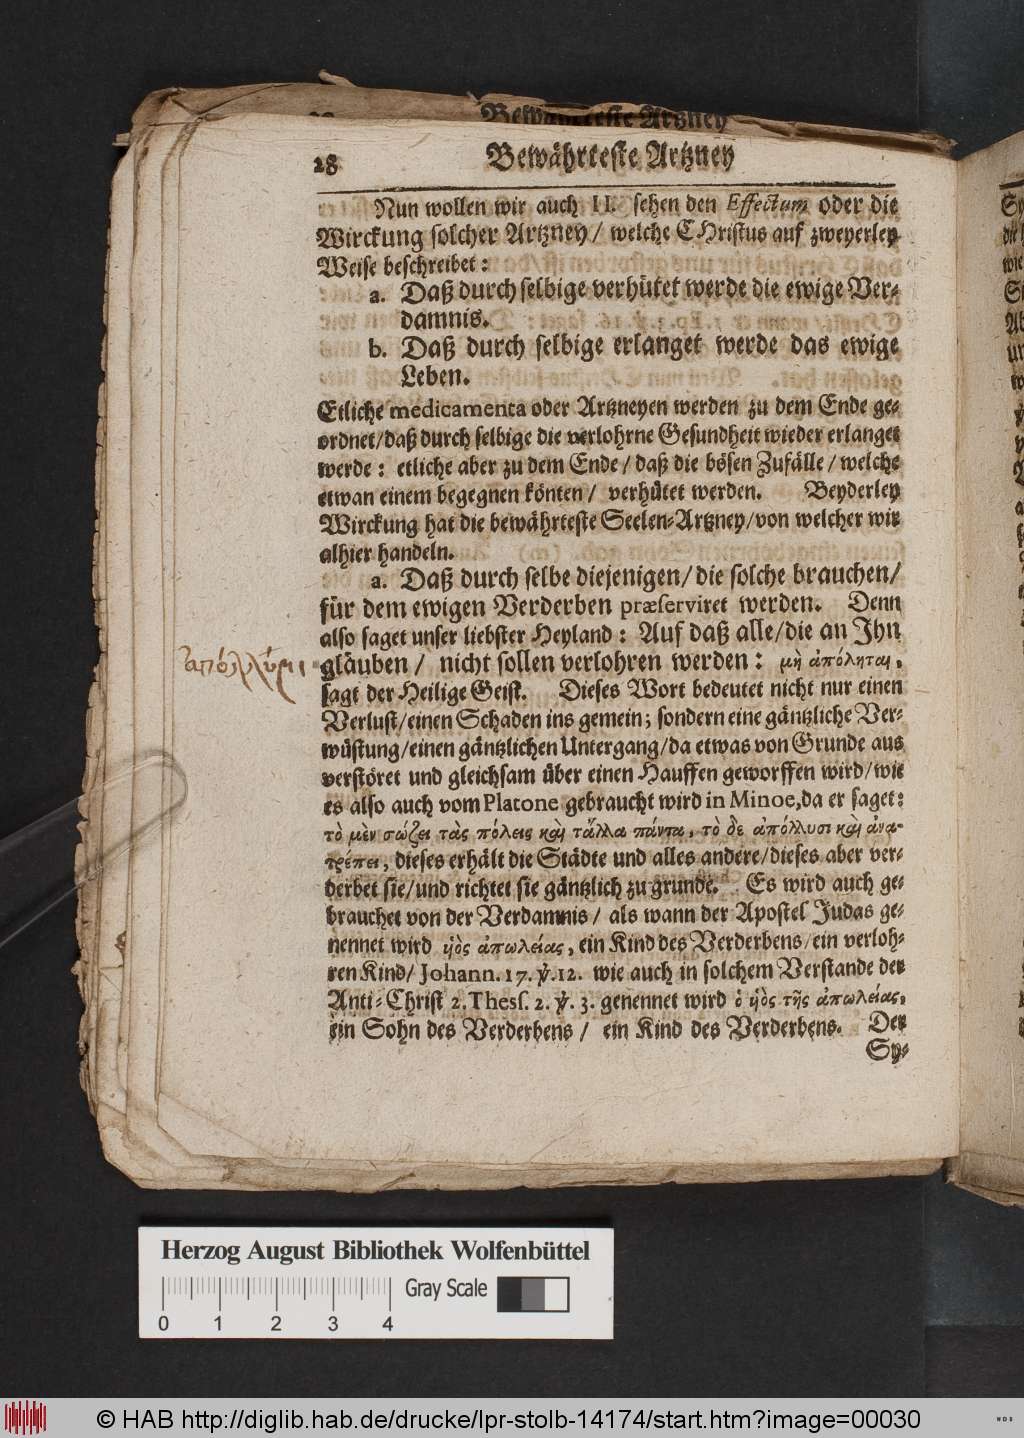 Bewährteste Artzney
28 Bewährteste Artzney
Nun wollen wir auch II. sehen den Effectum oder die
Wirckung solcher Artzney/ welche CHristus auf zweyerley
Weise beschreibet:
a. Daß durch selbige verhütet werde die ewige Ver-
damnis.
b. Daß durch selbige erlanget werde das ewige
Leben.
Etliche medicamenta oder Artzneyen werden zu dem Ende ge-
ordnet/daß durch selbige die verlohrne Gesundheit wieder erlanget
werde: etliche aber zu dem Ende/ daß die bösen Zufälle/ welche
etwan einem begegnen könten/ verhütet werden. Beyderley
Wirckung hat die bewährteste Seelen-Artzney/von welcher wir
alhier handeln.
a. Daß durch selbe diejenigen/ die solche brauchen/
für dem ewigen Verderben præserviret werden. Denn
also saget unser liebster Heyland: Auf daß alle/die an Ihn
gläuben/ nicht sollen verlohren werden: μὴ ἀπόληται,
sagt der Heilige Geist. Dieses Wort bedeutet nicht nur einen
Verlust/einen Schaden ins gemein; sondern eine gäntzliche Ver-
wüstung/einen gäntzlichen Untergang/da etwas von Grunde aus
verstöret und gleichsam über einen Hauffen geworffen wird/wie
es also auch vom Platone gebraucht wird in Minoe, da er saget:
τὸ μὲν σώζει τὰς πόλεις καὶ τἄλλα πάντα, τὸ δὲ ἀπόλλυσι καὶ ἀνα-
τρέπει, dieses erhält die Städte und alles andere/dieses aber ver-
derbet sie/und richtet sie gäntzlich zu grunde. Es wird auch ge-
brauchet von der Verdamnis/ als wann der Apostel Judas ge-
nennet wird ὑὸς ἀπωλείας, ein Kind des Verderbens/ein verloh-
ren Kind/ Johann. 17. ℣.12. wie auch in solchem Verstande der
Anti-Christ 2. Thess. 2. ℣. 3. genennet wird ὁ ὑὸς τῆς ἀπωλείας,
ein Sohn des Verderbens/ ein Kind des Verderbens. Der
Sy-
Herzog August Bibliothek Wolfenbüttel
Gray Scale
0 1 2 3 4
© HAB http://diglib.hab.de/drucke/lpr-stolb-14174/start.htm?image=00030